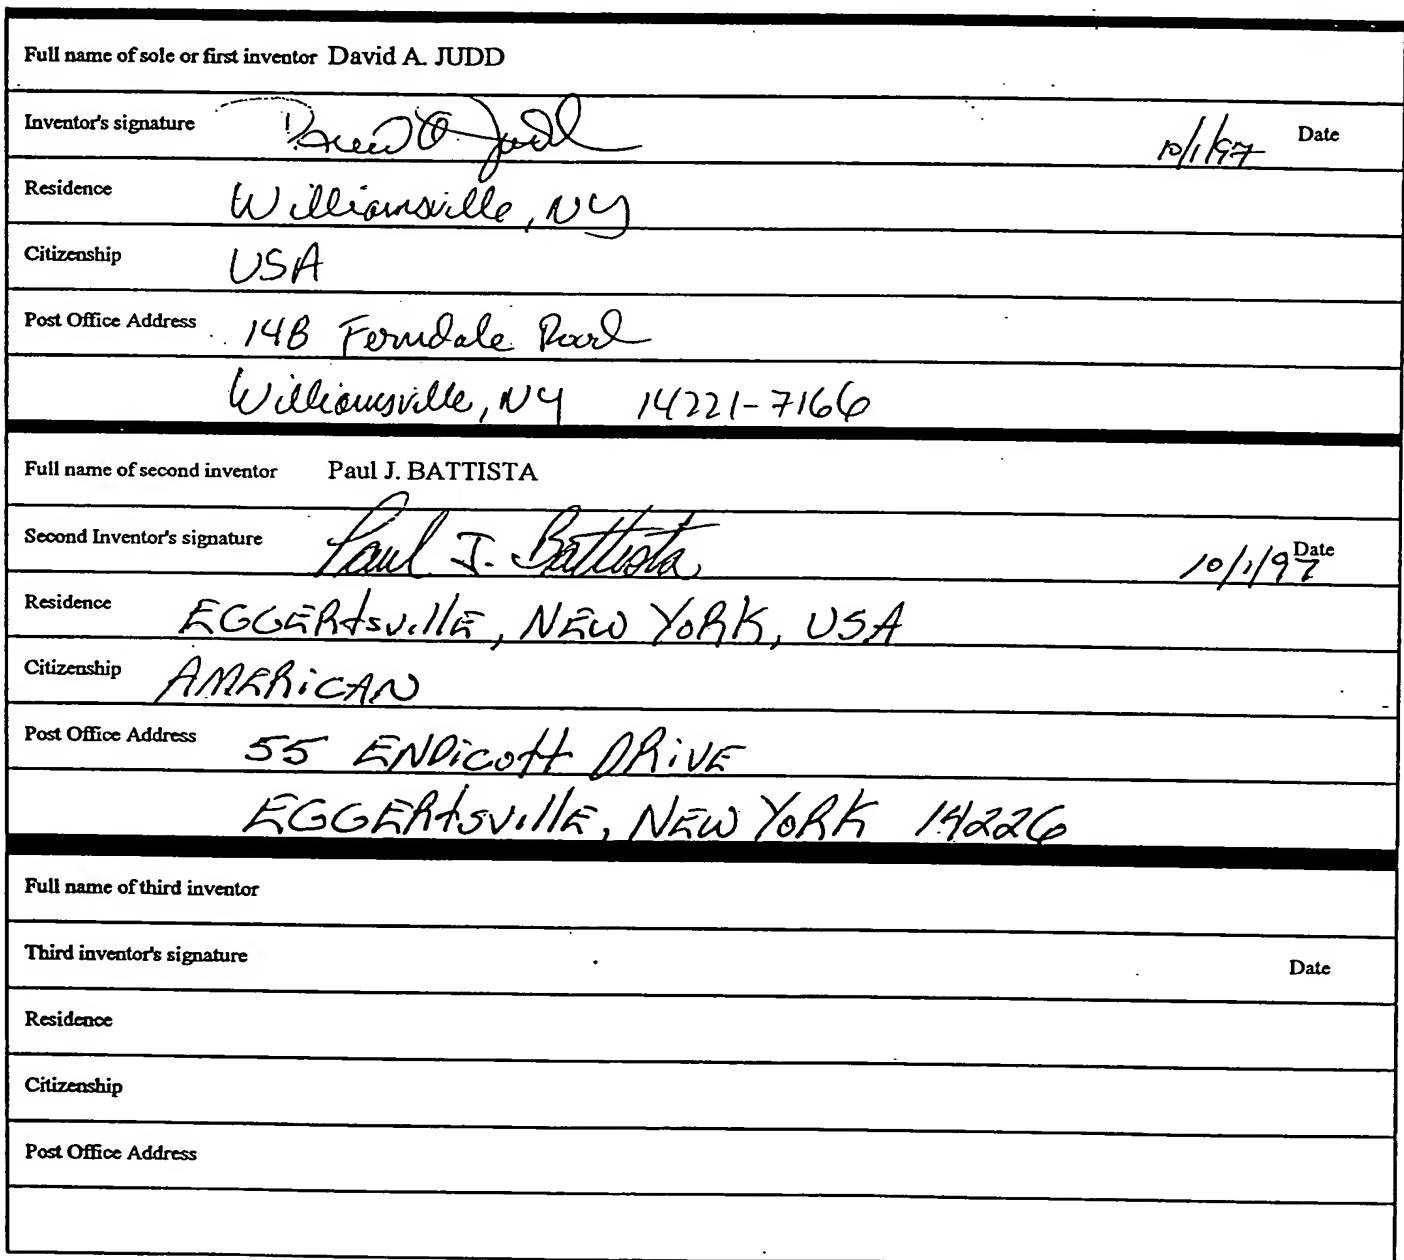 Full name of sole or first inventor David A. JUDD
Inventor's signature David A Judd 10/1/97 Date
Residence Williamsville, NY
Citizenship USA
Post Office Address 14B Ferndale Road
Williamsville, NY 14221-7166
Full name of second inventor Paul J. BATTISTA
Second Inventor's signature Paul J. Battista 10/1/97 Date
Residence EGGERtsville, NEW YORK, USA
Citizenship AMERiCAN
Post Office Address 55 ENDicott DRiVE
EGGERtsville, NEW YORK 14226
Full name of third inventor
Third inventor's signature Date
Residence
Citizenship
Post Office Address